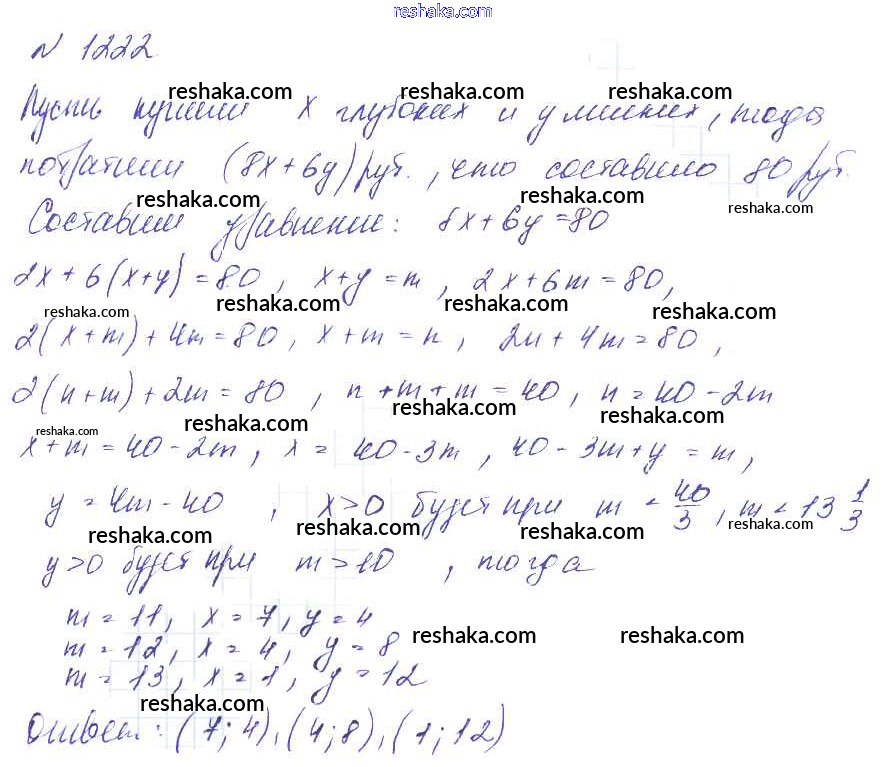 reshaka.com
N 1222
reshaka.com reshaka.com reshaka.com
Пусть купили x глубоких и y мелких, тогда
потратили (8x+6y) руб., что составило 80 руб.
reshaka.com reshaka.com reshaka.com
Составим уравнение: 8x+6y=80
2x+6(x+y)=80, x+y=m, 2x+6m=80,
reshaka.com reshaka.com reshaka.com reshaka.com
2(x+m)+4m=80, x+m=n, 2n+4m=80,
2(n+m)+2m=80, n+m+m=40, n=40-2m
reshaka.com reshaka.com reshaka.com reshaka.com
x+m=40-2m, x=40-3m, 40-3m+y=m,
y=4m-40, x>0 будет при m<40/3, m<13 1/3
reshaka.com reshaka.com reshaka.com reshaka.com
y>0 будет при m>10, тогда
m=11, x=7, y=4
reshaka.com reshaka.com
m=12, x=4, y=8
m=13, x=1, y=12
reshaka.com
Ответ: (7;4), (4;8), (1;12)